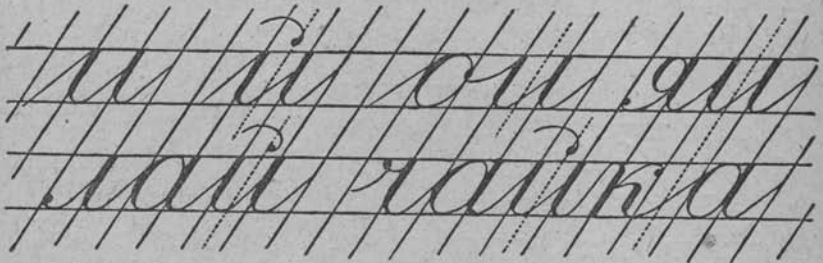 и й ои яи
лай чайка